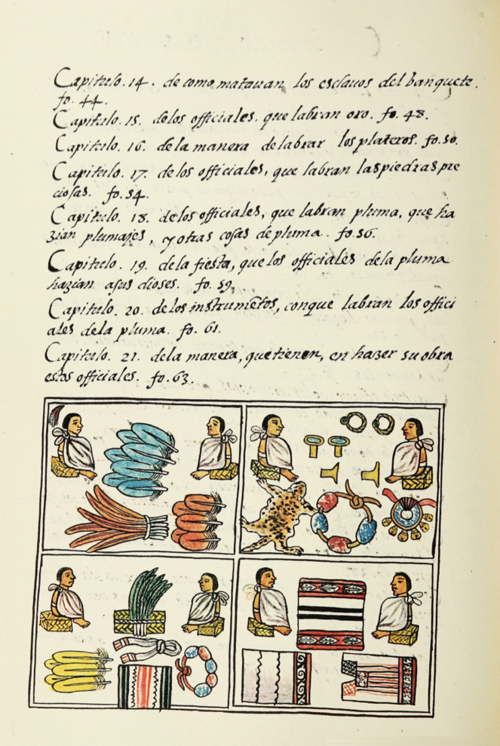 Capitulo. 14. de como matauan los esclauos del banquete.
fo. 44.
Capitulo. 15. delos officiales, que labran oro. fo. 48.
Capitulo. 16. dela manera delabrar los plateros. fo. 50.
Capitulo. 17. delos officiales, que labran laspiedras pre
ciosas. fo. 54.
Capitulo. 18. delos officiales, que labran pluma, que ha
zian plumajes, y otras cosas depluma. fo. 56.
Capitulo. 19. dela fiesta, que los officiales dela pluma
hazian asus dioses. fo. 59.
Capitulo. 20. delos instrumẽtos, conque labran los offici
ales dela pluma. fo. 61.
Capitulo. 21. dela manera, quetienen, en hazer su obra
estos officiales. fo. 63.